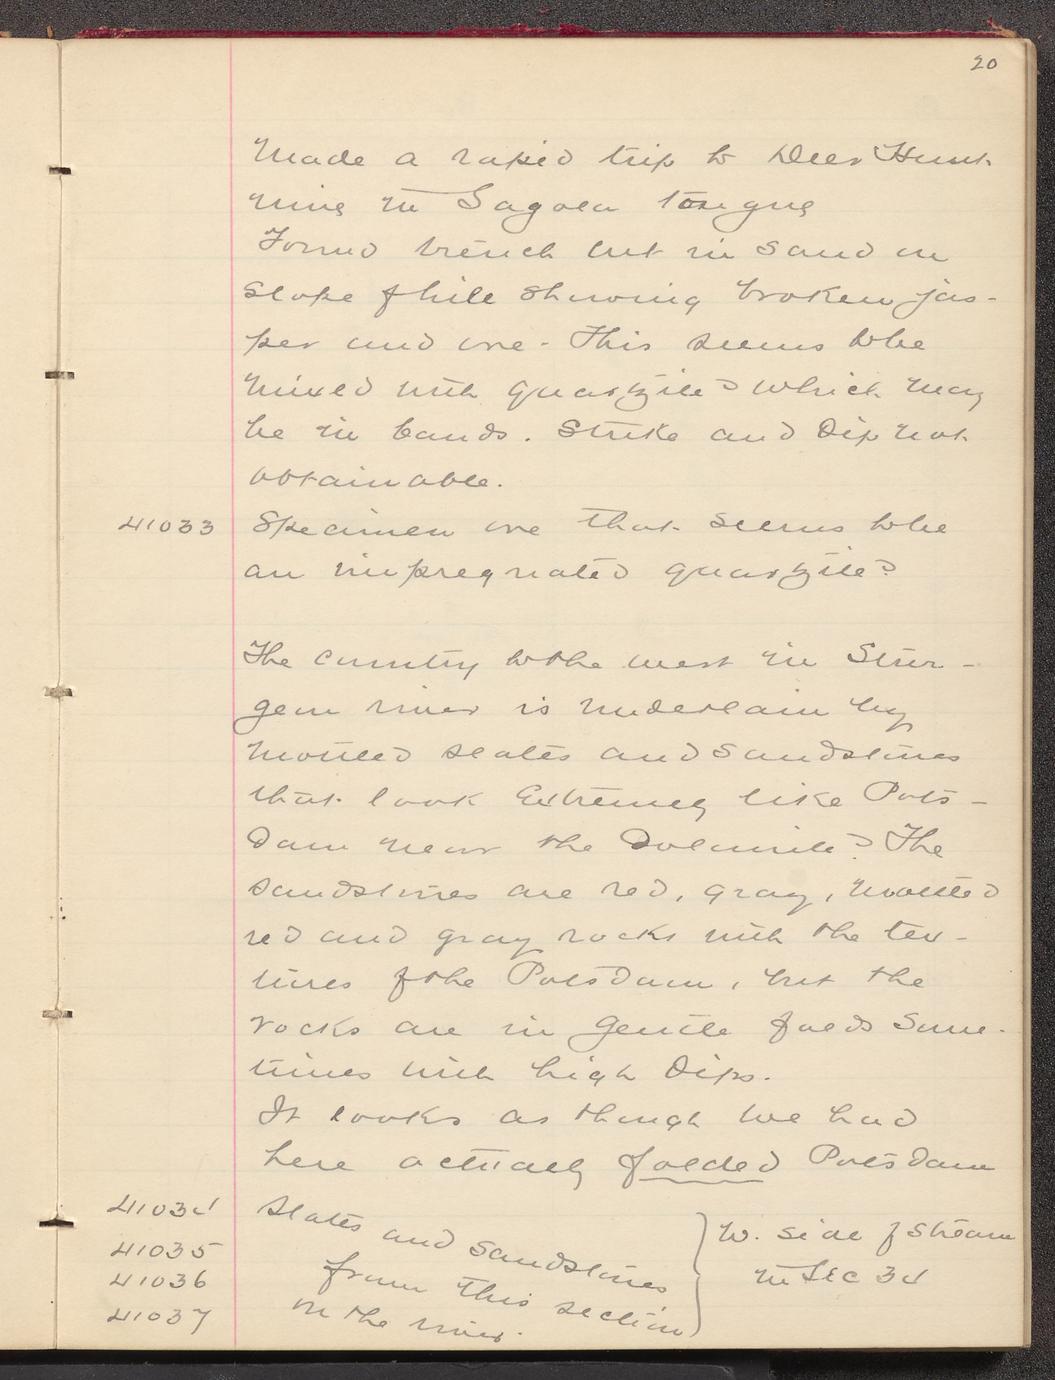 20
Made a rapid trip to Deer Hunt
mine in Sagola tongue
Found trench cut in sand on
slope of hill showing broken jas-
per and ore - This seems to be
mixed with quartzite? which may
be in bands. Strike and Dip not
obtainable.
41033 Specimen ore that seems to be
an impregnated quartzite?
The country to the west in Stur-
geon river is underlain by
mottled slates and sandstones
that look extremely like Pots-
dam near the Dolomite? The
sandstones are red, gray, mottled
red and gray rocks with the tex-
tures of the Potsdam, but the
rocks are in gentle folds some-
times with high Dips.
It looks as though we had
here actually folded Potsdam
41034 slates and sandstones
41035 from this section
41036 on the river.
41037
W. side of stream
in Sec 34